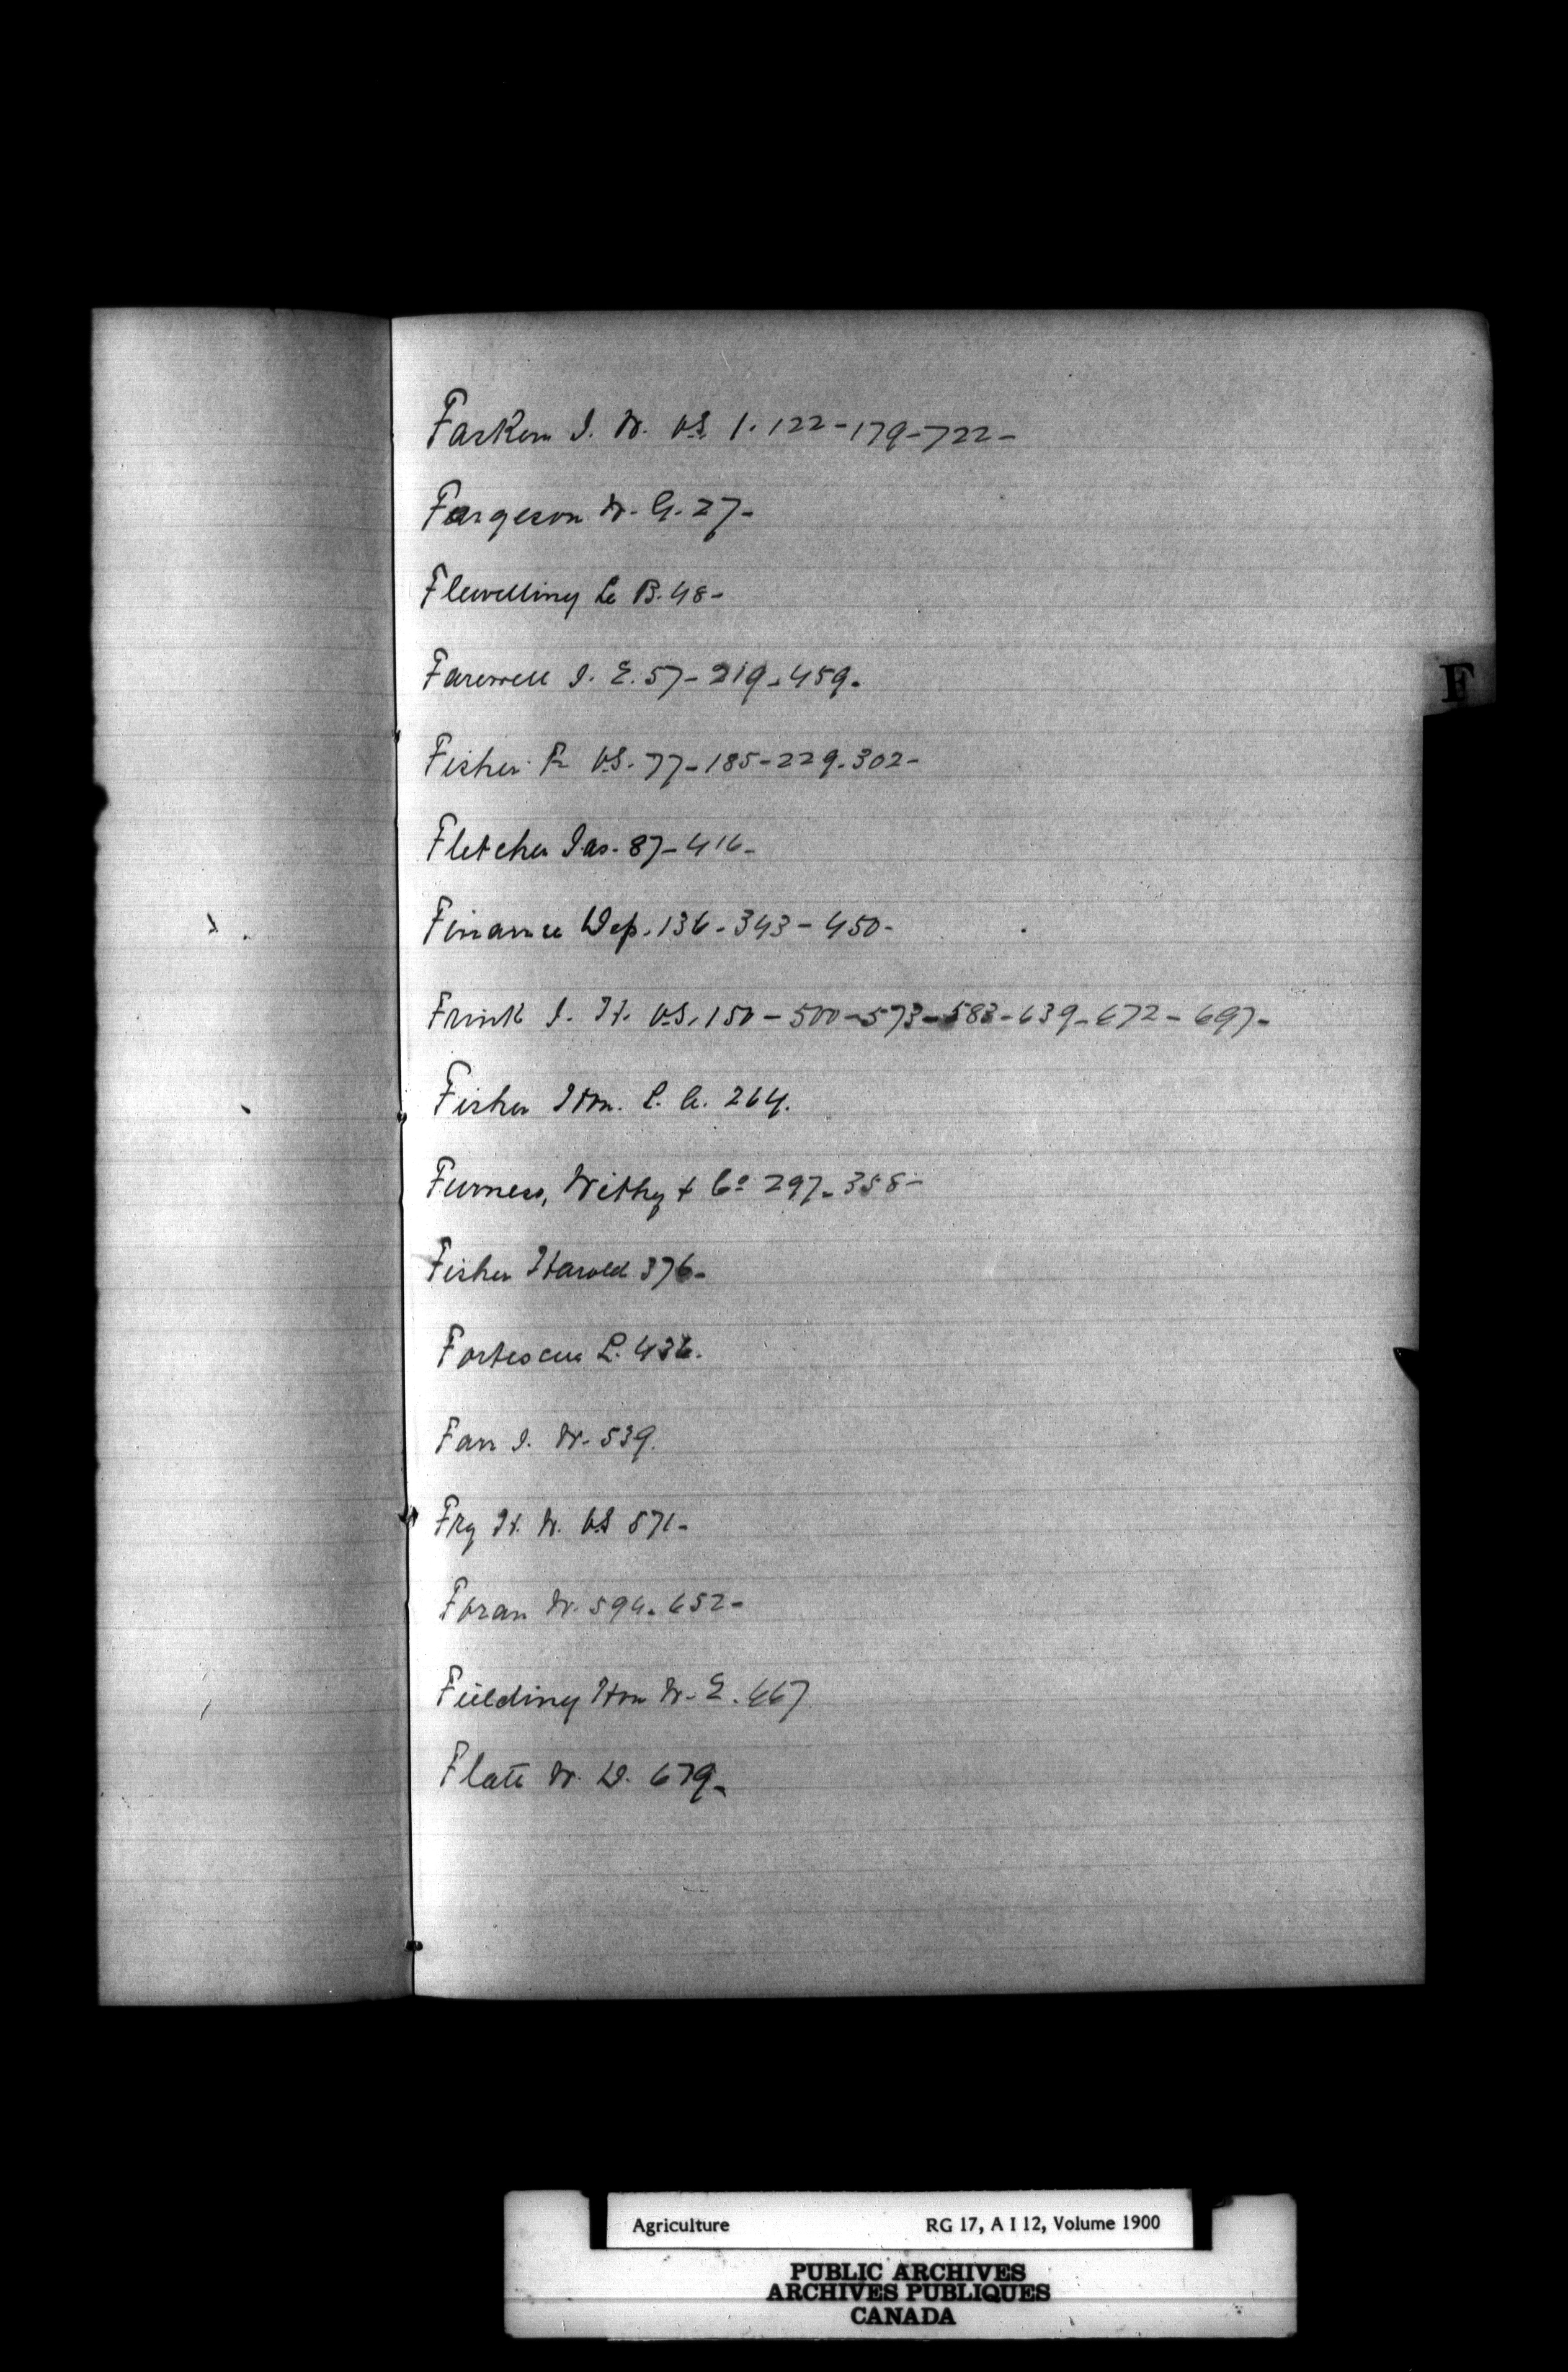 Farken J. W. V.S. 1. 122-179-722-
Fargeson W. G. 27-
Flewelling Le B. 48-
Farewell J. E. 57-219-459.
F
Fisher F. V.S. 77-185-229-302-
Fletcher Jas. 87-416-
Finance Dep. 136-343-450-
Frink J. H. V.S. 150-500-573-583-639-672-697-
Fisher Hon. 264.
Furness, Withy & Co 297-358-
Fisher Harold 376-
Fortescue L. 436.
Farr J. W. 539.
Fry H. W. VS 571-
Foran W. 594-652-
Fielding Hon W. E. 667
Flatt W. D. 679-
Agriculture RG 17, A I 12, Volume 1900
PUBLIC ARCHIVES
ARCHIVES PUBLIQUES
CANADA